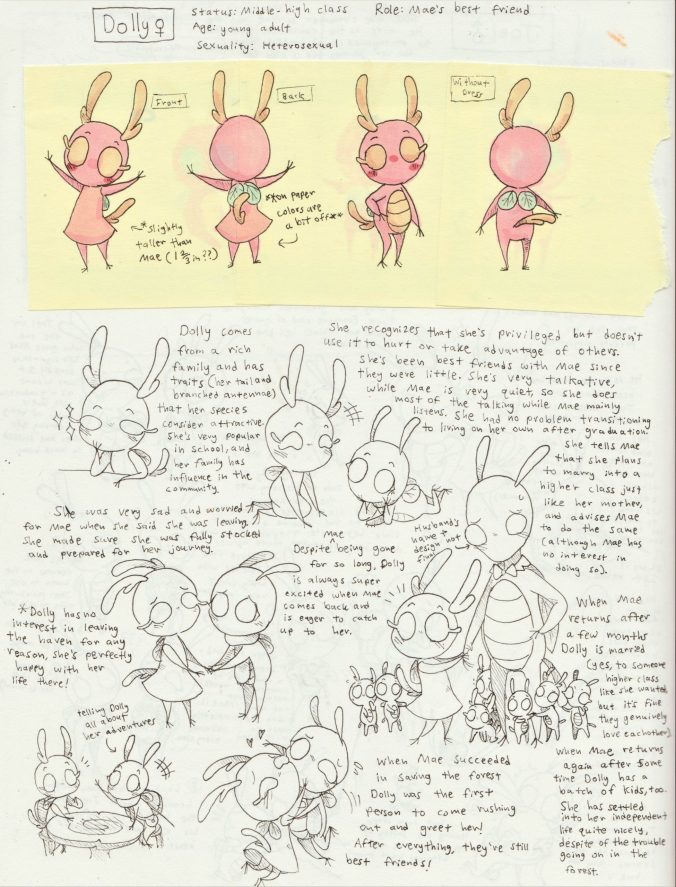 Dolly ♀
Status: Middle-high class
Age: young adult
Sexuality: Heterosexual
Role: Mae's best friend
Front
Back
Without
Dress
*Slightly
taller than
Mae (1 2/3 in??)
**on paper
colors are
a bit off**
Dolly comes
from a rich
family and has
traits (her tail and
branched antennae)
that her species
consider attractive.
She's very popular
in school, and
her family has
influence in the
community.
She recognizes that she's privileged but doesn't
use it to hurt or take advantage of others.
She's been best friends with Mae since
they were little. She's very talkative,
while Mae is very quiet, so she does
most of the talking while Mae mainly
listens. She had no problem transitioning
to living on her own after graduation.
She tells Mae
that she plans
to marry into a
higher class just
like her mother,
and advises Mae
to do the same
(although Mae has
no interest in
doing so).
She was very sad and worried
for Mae when she said she was leaving.
She made sure she was fully stocked
and prepared for her journey.
Mae
Despite being gone
for so long, Dolly
is always super
excited when Mae
comes back and
is eager to catch
up to her.
Husband's
name +
design not
final
*Dolly has no
interest in leaving
the haven for any
reason, she's perfectly
happy with her
life there!
When Mae
returns after
a few months
Dolly is married
(yes, to someone
higher class
like she wanted
but it's fine
they genuinely
love eachother).
telling Dolly
all about
her adventures
When Mae succeeded
in saving the forest
Dolly was the first
person to come rushing
out and greet her!
After everything, they're still
best friends!
When Mae returns
again after some
time Dolly has a
batch of kids, too.
She has settled
into her independent
life quite nicely,
despite of the trouble
going on in the
forest.